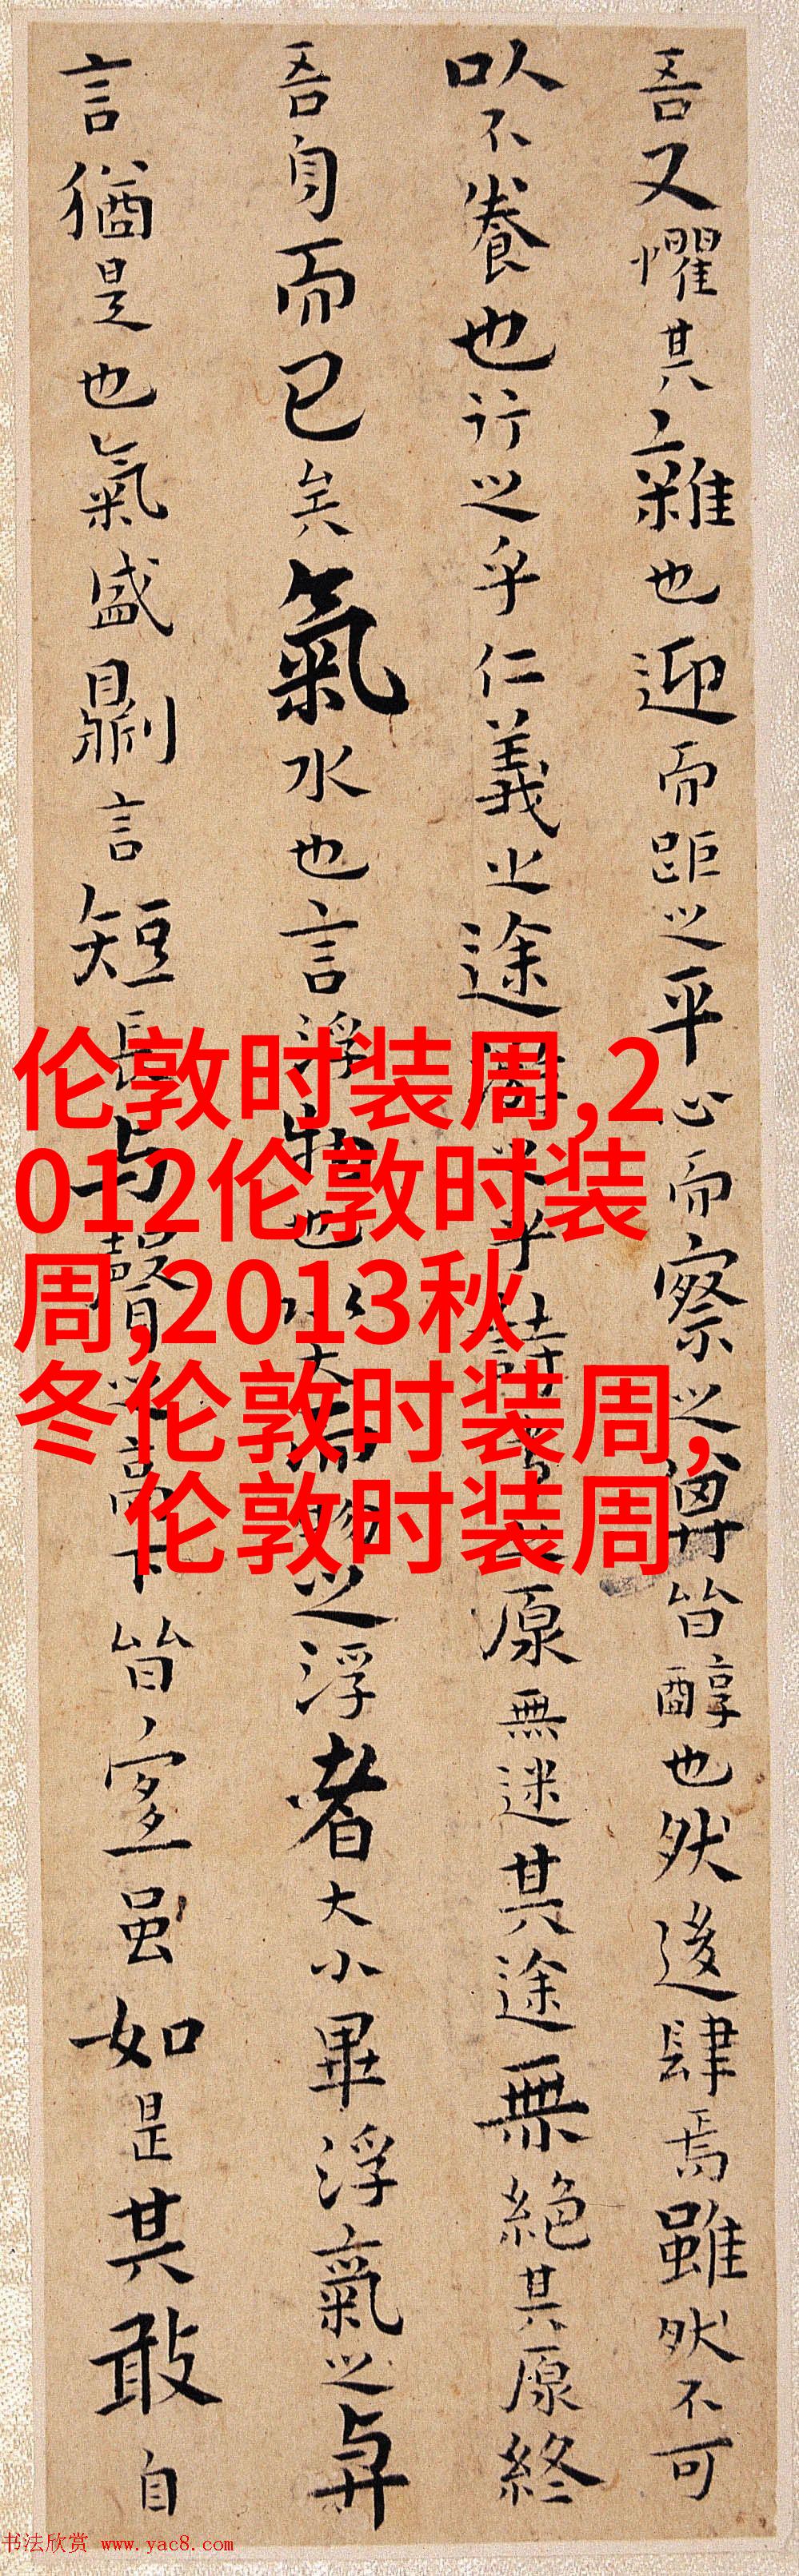 吾又懼其雜也迎而距之平心而察之皆醇也然後肆焉雖然不可
以不養也行之乎仁義之途游之乎詩書之原無迷其途無絕其原終
吾身而已矣氣水也言浮物也水大而物之浮者大小畢浮氣之與
言猶是也氣盛則言短長與聲之高下皆宜虽如是其敢自
伦敦时装周,2
012伦敦时装
周,2013秋
冬伦敦时装周,
伦敦时装周
书法欣赏 www.yac8.com